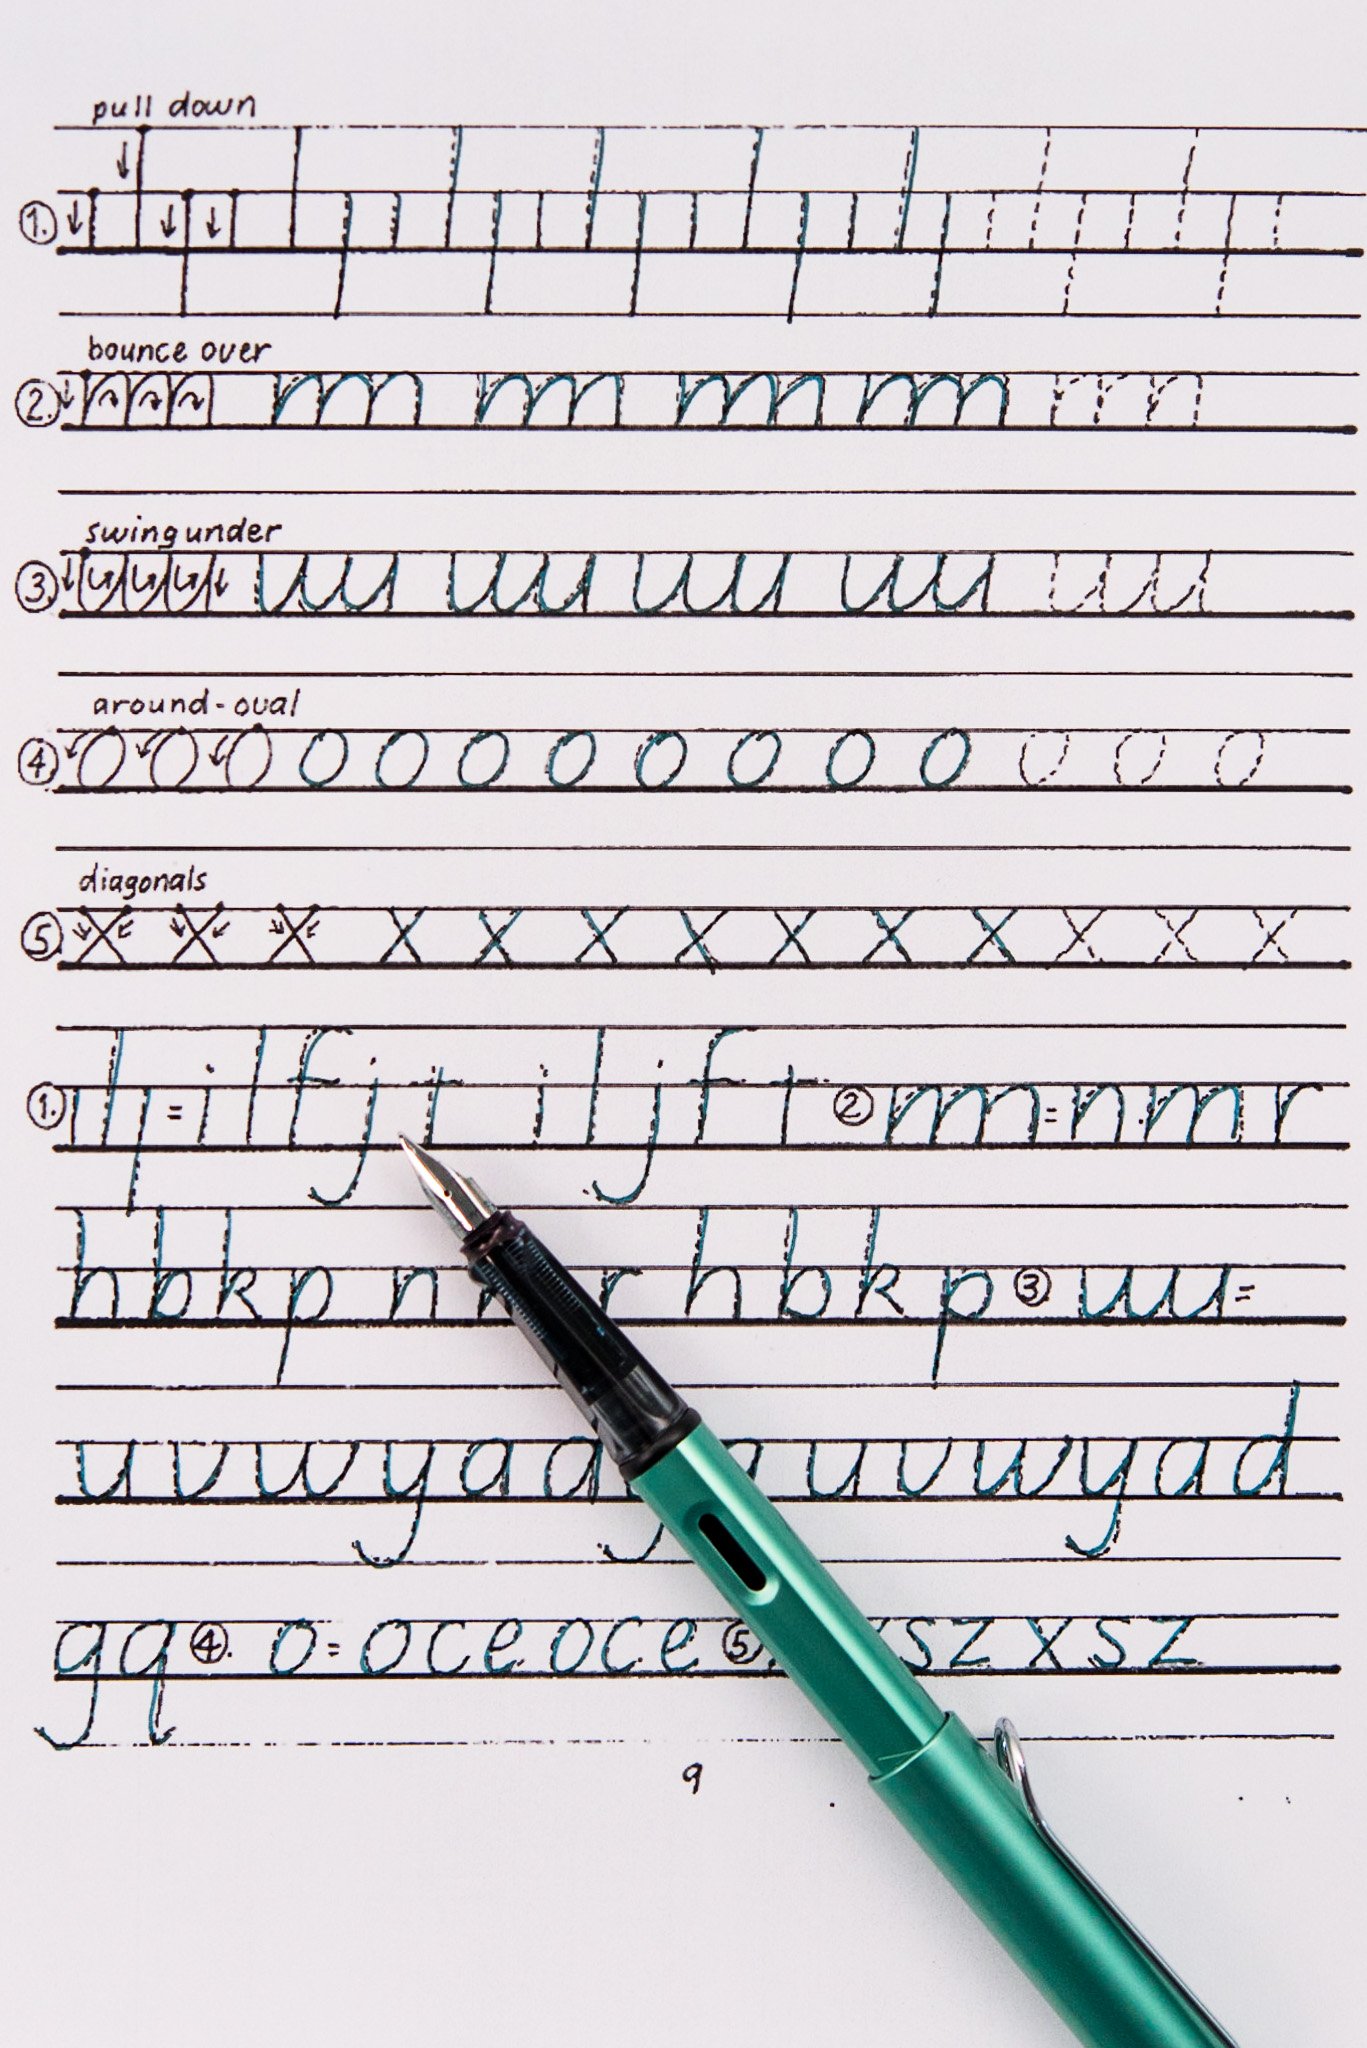 pull down
1.
bounce over
2.
swing under
3.
around-oval
4
diagonals
5.
1. = i l f j t i l j f t 2 m = n m r
h b k p n r h b k p 3 uu =
u v w y a d u v w y a d
g q 4. o = o c e o c e 5. s z x s z
9